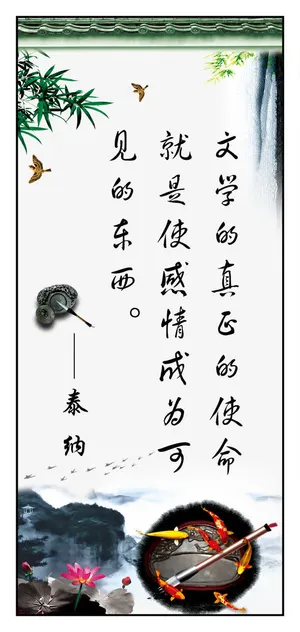 文学的真正的使命
就是使感情成为可
见的东西。
——泰纳